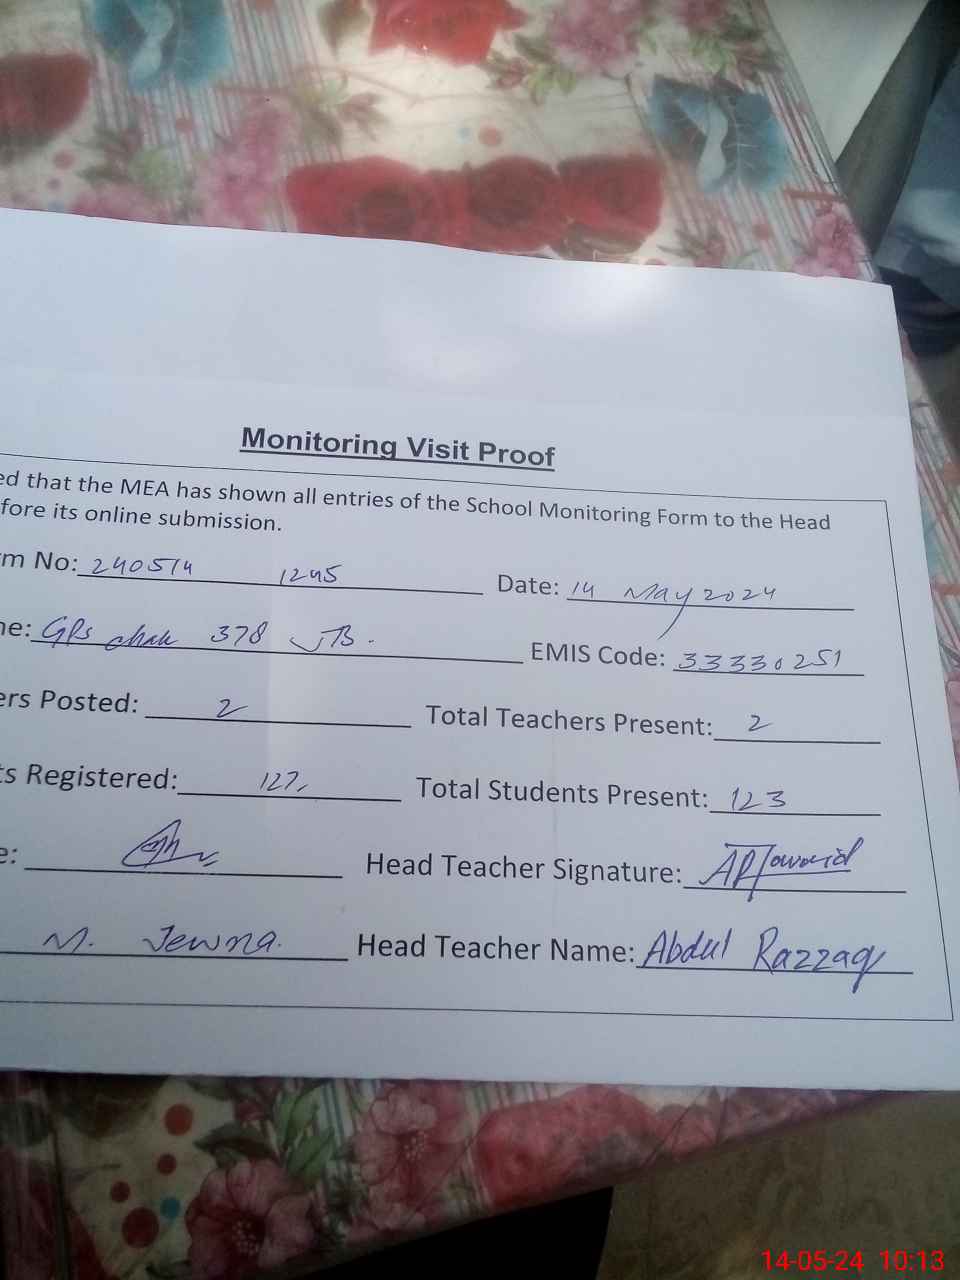 Monitoring Visit Proof
ed that the MEA has shown all entries of the School Monitoring Form to the Head
fore its online submission.
rm No: 240514 1245 Date: 14 May 2024
me: GPS chak 378 JB. EMIS Code: 33330251
ers Posted: 2 Total Teachers Present: 2
ts Registered: 127 Total Students Present: 123
e: Head Teacher Signature:
M. Head Teacher Name: Abdul Razzaq
14-05-24 10:13